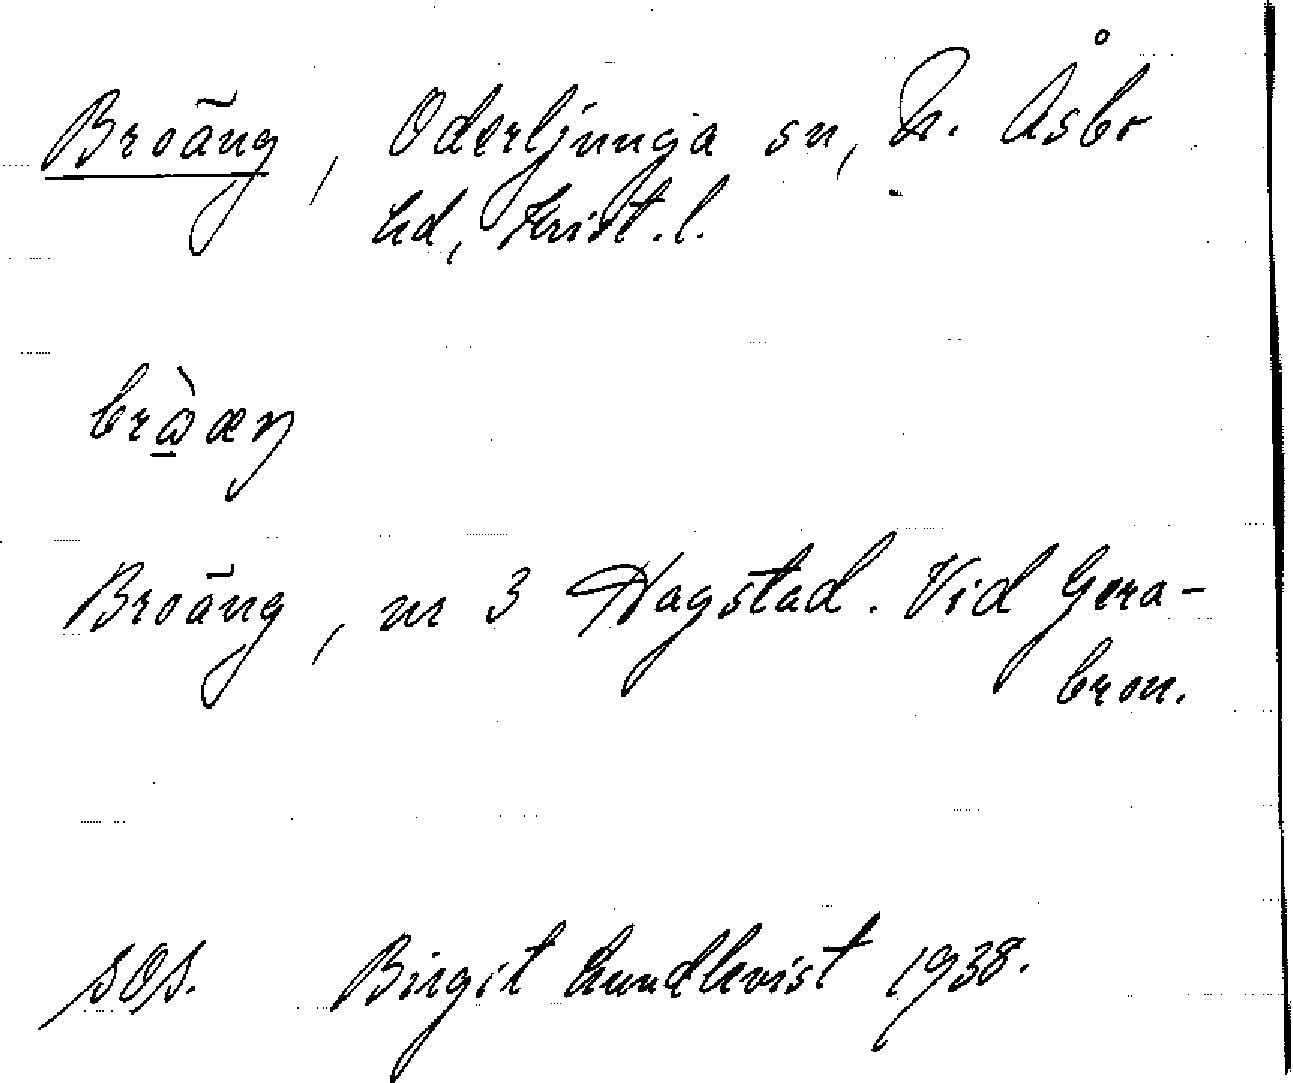 Broäng, Oderljunga sn, N. Åsbo
hd, Krist. l.
bròæŋ
Broäng, nr 3 Hagstad. Vid Gera-
bron.
sOs. Birgit Lundkvist 1938.